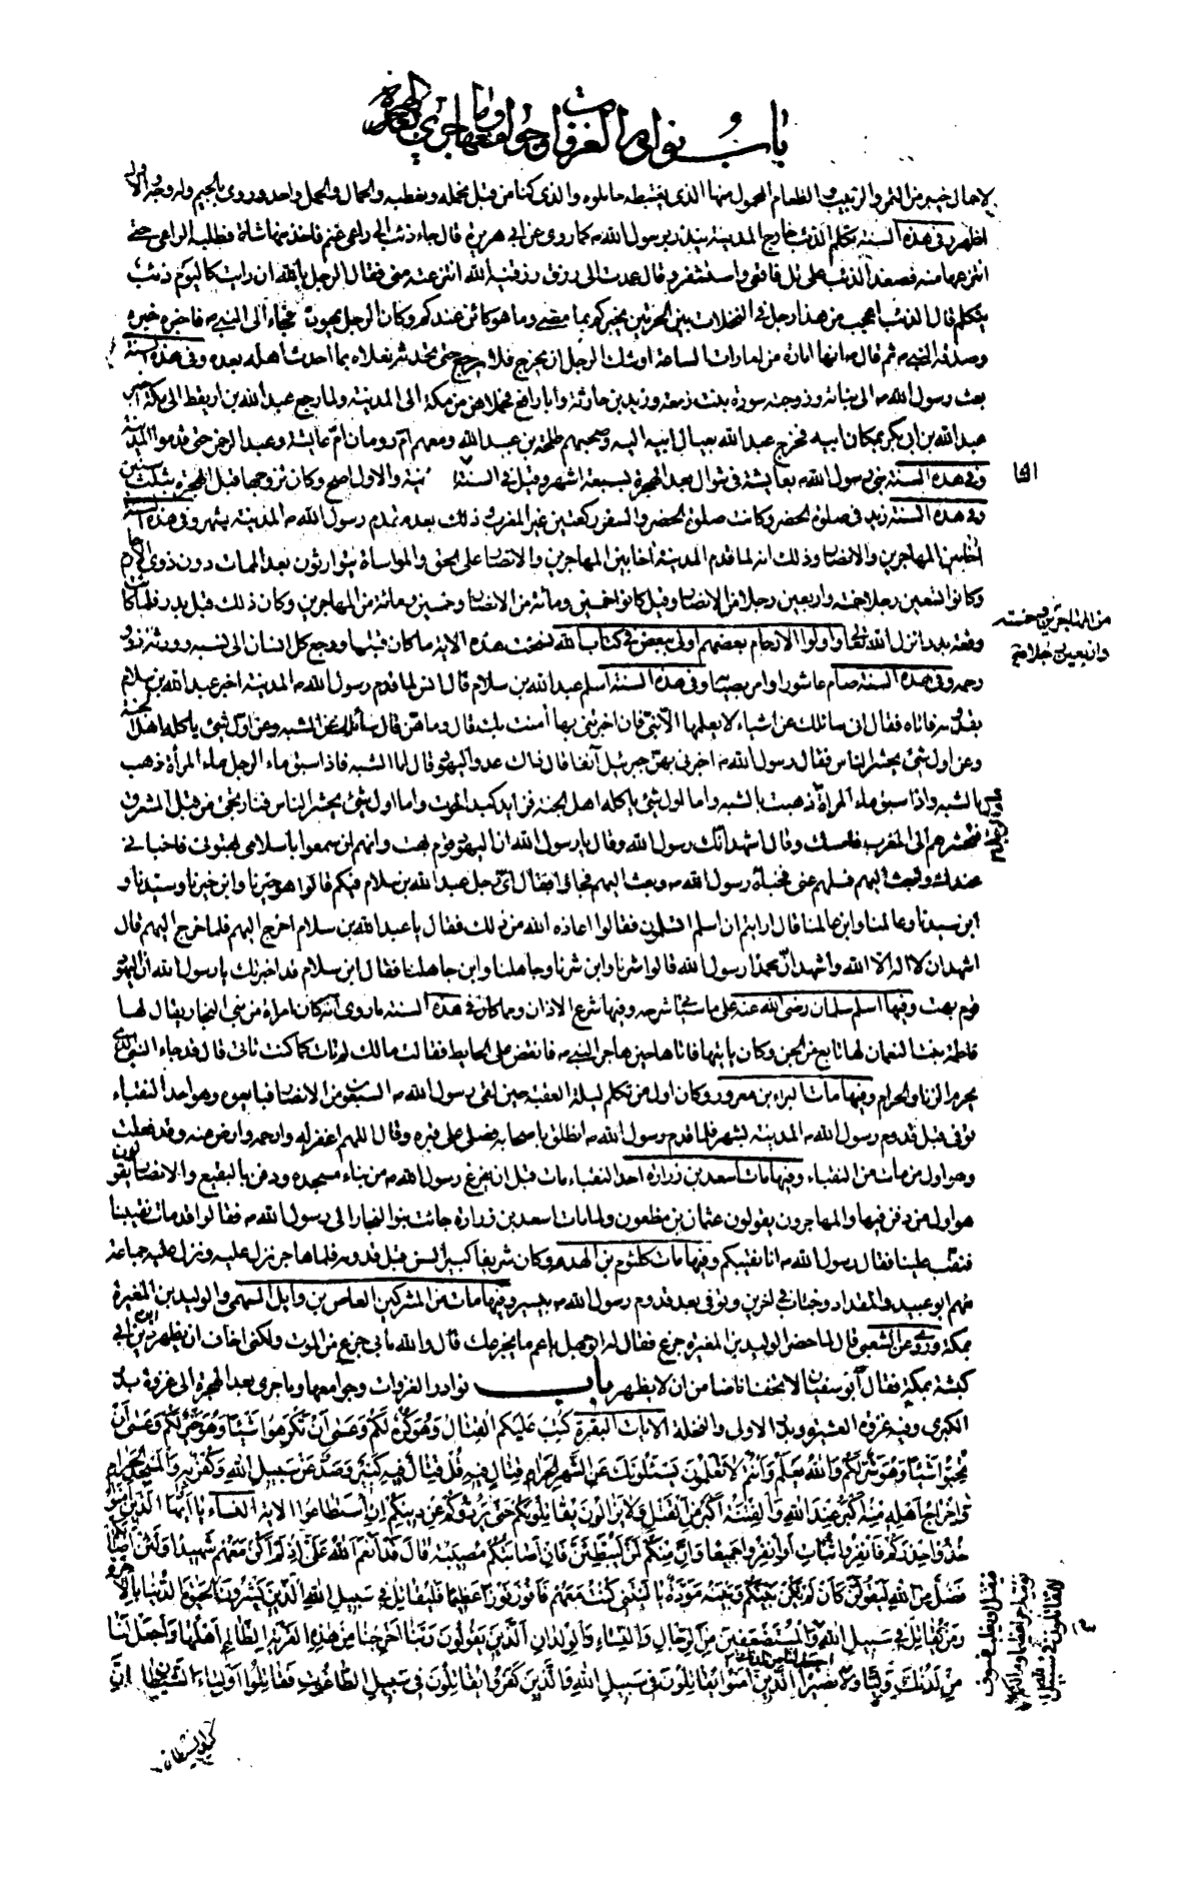 باب نوادر الغزوات وجوامعها وما جرى بعد الهجرة
لاحمال خيبر من التمر والزبيب والطعام المحمول منها الذي يغتبطه حاملوه والذي كنا من قبل نحمله ونغطبه والحمال والحمل واحد وروى بالجيم وله وجه والاول
اظهر وفي هذه السنة تكلم الذئب خارج المدينة ينذر برسول الله ص كما روي عن ابي هريرة قال جاء ذئب الى راعي غنم فاخذ منها شاة فطلبه الراعي حتى
انتزعها منه فصعد الذئب على تل فاقعى واستثفر وقال عمدت الى رزق رزقنيه الله انتزعته مني فقال الرجل بالله ان رايت كاليوم ذئب
يتكلم قال الذئب اعجب من هذا رجل في النخلات بين الحرتين يخبركم بما مضى وما هو كائن عندكم وكان الرجل يهوديا فجاء الى النبي ص فاخبره خبره
وصدقه النبي ص ثم قال ص انها امارة من امارات الساعة اوشك الرجل ان يخرج فلا يرجع حتى تحدثه نعلاه بما احدث اهله بعده وفي هذه السنة
بعث رسول الله ص الى بناته وزوجته سودة بنت زمعة وزيد بن حارثة وأبا رافع فحملاهن من مكة الى المدينة ولما رجع عبد الله بن اريقط الى مكة اخبر
عبد الله بن ابي بكر بمكان ابيه فخرج عبد الله بعيال ابيه اليه وصحبهم طلحة بن عبيد الله ومعهم ام رومان ام عايشة وعبد الرحمن حتى قدموا المدينة
وفي هذه السنة بنى رسول الله ص بعايشة في شوال بعد الهجرة بسبعة اشهر وقيل في السنة الثانية والاول اصح وكان تزوجها قبل الهجرة بثلث سنين
وفي هذه السنة زيد في صلوة الحضر وكانت صلوة الحضر والسفر ركعتين غير المغرب وذلك بعد مقدم رسول الله ص المدينة بشهر وفي هذه السنة
آخا بين المهاجرين والانصار وذلك انه لما قدم المدينة آخا بين المهاجرين والانصار على الحق والمواساة يتوارثون بعد الممات دون ذوي الارحام
وكانوا تسعين رجلا خمسة واربعين رجلا من الانصار وقيل كانوا خمسين ومائة من الانصار وخمسين ومائة من المهاجرين وكان ذلك قبل بدر فلما كانت
وقعة بدر انزل الله تعالى واولوا الارحام بعضهم اولى ببعض في كتاب الله نسخت هذه الاية ما كان قبلها ورجع كل انسان الى نسبه وورثه ذوو
رحمه وفي هذه السنة صام عاشورا وامر بصيامه وفي هذه السنة اسلم عبد الله بن سلام قال انس لما قدم رسول الله ص المدينة اخبر عبد الله بن سلام
بقدومه فاتاه فقال اني سائلك عن اشياء لا يعلمها الا نبي فان اخبرتني بها آمنت بك قال وما هن قال سألتك عن الشبه وعن اول شيء ياكله اهل الجنة
وعن اول شيء يحشر الناس فقال رسول الله ص اخبرني بهن جبرئيل آنفا قال ذاك عدو اليهود قال اما الشبه فاذا سبق ماء الرجل ماء المرأة ذهب
بالشبه واذا سبق ماء المرأة ذهبت بالشبه واما اول شيء ياكله اهل الجنة فزايد كبد الحوت واما اول شيء يحشر الناس فنار تجيء من قبل المشرق
فتحشرهم الى المغرب فامسك وقال اشهد انك رسول الله وقال يا رسول الله ان اليهود قوم بهت وانهم ان سمعوا باسلامي بهتوني فاخباني
عندك وابعث اليهم فسلهم عني فخباه رسول الله ص وبعث اليهم فجاؤا فقال اي رجل عبد الله بن سلام فيكم قالوا هو خيرنا وابن خيرنا وسيدنا و
ابن سيدنا وعالمنا وابن عالمنا قال ارايتم ان اسلم اتسلمون فقالوا اعاذه الله من ذلك فقال يا عبد الله بن سلام اخرج اليهم فلما خرج اليهم قال
اشهد ان لا اله الا الله واشهد ان محمدا رسول الله قالوا شرنا وابن شرنا وجاهلنا وابن جاهلنا فقال ابن سلام قد اخبرتك يا رسول الله ان اليهود
قوم بهت وفيها اسلم سلمان رضى الله عنه على ما سيجيء شرحه وفيها شرع الاذان ومما كان في هذه السنة ما روي انه كان امراة من بني النجار يقال لها
فاطمة بنت النعمان لها تابع من الجن وكان ياتيها فاتاها حين هاجر النبي ص فانقض على الحايط فقالت ما لك لم تات كما كنت تاتي قال قد جاء النبي الذي
يحرم الزنا والحرام وفيها مات البراء بن معرور وكان اول من تكلم ليلة العقبة حين لقي رسول الله ص السبعون من الانصار فبايعوه وهو احد النقباء
توفي قبل قدوم رسول الله ص المدينة بشهر فلما قدم رسول الله ص انطلق باصحابه فصلى على قبره وقال اللهم اغفر له وارحمه وارض عنه وقد فعلت
وهو اول من مات من النقباء وفيها مات اسعد بن زرارة احد النقباء مات قبل ان يفرغ رسول الله ص من بناء مسجده ودفن بالبقيع والانصار يقولون
هو اول من دفن فيها والمهاجرون يقولون عثمان بن مظعون ولما مات اسعد بن زرارة جائت بنو النجار الى رسول الله ص فقالوا قد مات نقيبنا
فنقب علينا فقال رسول الله ص انا نقيبكم وفيها مات كلثوم بن الهدم وكان شريفا كبير السن قبل قدومه فلما هاجر نزل عليه ونزل عليه جماعة
منهم ابو عبيدة والمقداد وخباب في اخرين وتوفي بعد قدوم رسول الله ص بيسير وفيها مات من المشركين العاص بن وايل السهمي والوليد بن المغيرة
بمكة وروي عن الشعبي قال لما حضر الوليد بن المغيرة جزع فقال له ابو جهل يا عم ما يجزعك قال والله ما بي جزع من الموت ولكني اخاف ان يظهر دين ابن ابي
كبشة بمكة فقال ابو سفيان لا تخف انا ضامن ان لا يظهر باب نوادر الغزوات وجوامعها وما جرى بعد الهجرة الى غزوة بدر
الكبرى وفيه غزوة العشيرة وبدر الاولى والنخلة الايات البقرة كُتِبَ عَلَيْكُمُ الْقِتَالُ وَهُوَ كُرْهٌ لَكُمْ وَعَسَى أَنْ تَكْرَهُوا شَيْئًا وَهُوَ خَيْرٌ لَكُمْ وَعَسَى أَنْ
تُحِبُّوا شَيْئًا وَهُوَ شَرٌّ لَكُمْ وَاللَّهُ يَعْلَمُ وَأَنْتُمْ لَا تَعْلَمُونَ يَسْئَلُونَكَ عَنِ الشَّهْرِ الْحَرَامِ قِتَالٍ فِيهِ قُلْ قِتَالٌ فِيهِ كَبِيرٌ وَصَدٌّ عَنْ سَبِيلِ اللَّهِ وَكُفْرٌ بِهِ وَالْمَسْجِدِ الْحَرَامِ
وَإِخْرَاجُ أَهْلِهِ مِنْهُ أَكْبَرُ عِنْدَ اللَّهِ وَالْفِتْنَةُ أَكْبَرُ مِنَ الْقَتْلِ وَلَا يَزَالُونَ يُقَاتِلُونَكُمْ حَتَّى يَرُدُّوكُمْ عَنْ دِينِكُمْ إِنِ اسْتَطَاعُوا الاية النساء يَا أَيُّهَا الَّذِينَ آمَنُوا
خُذُوا حِذْرَكُمْ فَانْفِرُوا ثُبَاتٍ أَوِ انْفِرُوا جَمِيعًا وَإِنَّ مِنْكُمْ لَمَنْ لَيُبَطِّئَنَّ فَإِنْ أَصَابَتْكُمْ مُصِيبَةٌ قَالَ قَدْ أَنْعَمَ اللَّهُ عَلَيَّ إِذْ لَمْ أَكُنْ مَعَهُمْ شَهِيدًا وَلَئِنْ أَصَابَكُمْ
فَضْلٌ مِنَ اللَّهِ لَيَقُولَنَّ كَأَنْ لَمْ تَكُنْ بَيْنَكُمْ وَبَيْنَهُ مَوَدَّةٌ يَا لَيْتَنِي كُنْتُ مَعَهُمْ فَأَفُوزَ فَوْزًا عَظِيمًا فَلْيُقَاتِلْ فِي سَبِيلِ اللَّهِ الَّذِينَ يَشْرُونَ الْحَيَوةَ الدُّنْيَا بِالْآخِرَةِ
وَمَنْ يُقَاتِلْ فِي سَبِيلِ اللَّهِ وَالْمُسْتَضْعَفِينَ مِنَ الرِّجَالِ وَالنِّسَاءِ وَالْوِلْدَانِ الَّذِينَ يَقُولُونَ رَبَّنَا أَخْرِجْنَا مِنْ هَذِهِ الْقَرْيَةِ الظَّالِمِ أَهْلُهَا وَاجْعَلْ لَنَا
مِنْ لَدُنْكَ وَلِيًّا وَاجْعَلْ لَنَا مِنْ لَدُنْكَ نَصِيرًا الَّذِينَ آمَنُوا يُقَاتِلُونَ فِي سَبِيلِ اللَّهِ وَالَّذِينَ كَفَرُوا يُقَاتِلُونَ فِي سَبِيلِ الطَّاغُوتِ فَقَاتِلُوا أَوْلِيَاءَ الشَّيْطَانِ إِنَّ
كيد الشيطان
من المهاجرين وخمسة
واربعين رجلا من
فيقتل او يغلب فسوف
نؤتيه اجرا عظيما وما لكم
لا تقاتلون في سبيل الله